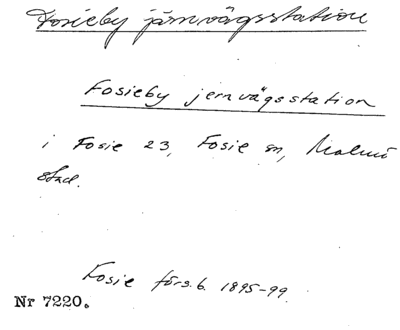 Fosieby järnvägsstation
Fosieby jernvägsstation
i Fosie 23, Fosie sn, Malmö
stad.
Fosie förs.b. 1895-99
Nr 7220.